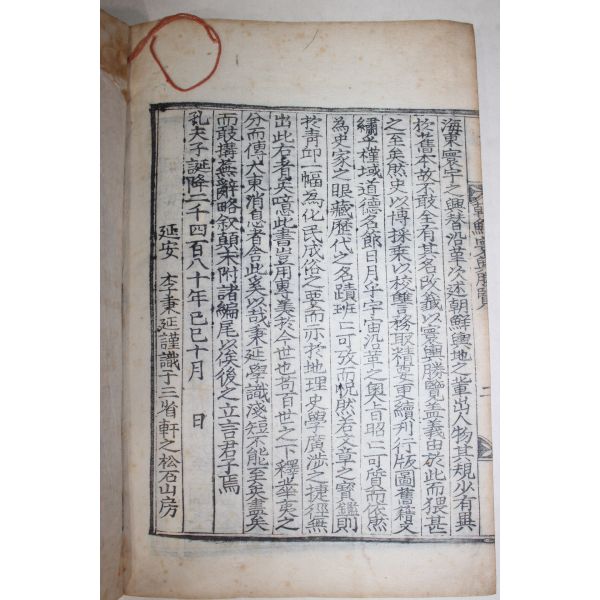 海東寰宇之興替沿革次述朝鮮輿地之輩出人物其規少有異
於舊本故不敢全有其名改籤以寰輿勝覽盖義由於此而猥甚
之至矣然史以博採秉以校讐務取精更續刊行版圖舊籍文
繡槿域道德名節日月乎宇宙沿革之輿旨昭〻可質而依然
為史家之眼藏歷代之名蹟班〻可攷而怳然若文章之寶鑑則
於靑邱一幅為化民成俗之要而亦於地理史學廣涉之捷徑無
出此右者矣噫此書豈用專美於今世也哉百世之下釋華夷之
分而傳大東消息者舍此奚以哉秉延學識淺短不能至矣盡矣
而敢搆蕪辭略叙顛末附諸編尾以俟後之立言君子焉
孔夫子誕降二千四百八十年己巳十月 日
延安 李秉延謹識于三省軒之松石山房
朝鮮寰輿勝覽
二